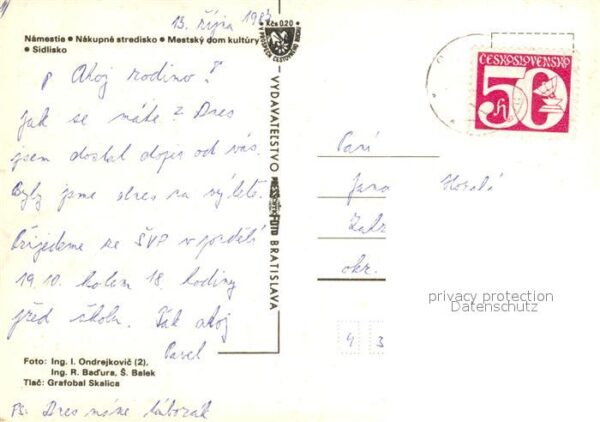 13. října 1983
Námestie • Nákupné stredisko • Mestský dom kultúry
• Sídlisko
Kčs 0,20
V PROSPECH CESTOVNÉHO RUCHU
Ahoj rodino!
Jak se máte? Dnes
jsem dostal dopis od vás.
Byly jsme dnes na výletě.
Přijedeme ze ŠVP v pondělí
19.10. kolem 18. hodiny
před školu. Tak ahoj
Pavel
Foto: Ing. I. Ondrejkovič (2).
Ing. R. Baďura, Š. Balek
Tlač: Grafobal Skalica
PS. Dnes máme táborák
VYDAVATEĽSTVO
BRATISLAVA
ČESKOSLOVENSKO
50 h
Paní
Jana
okr.
privacy protection
Datenschutz
4 3